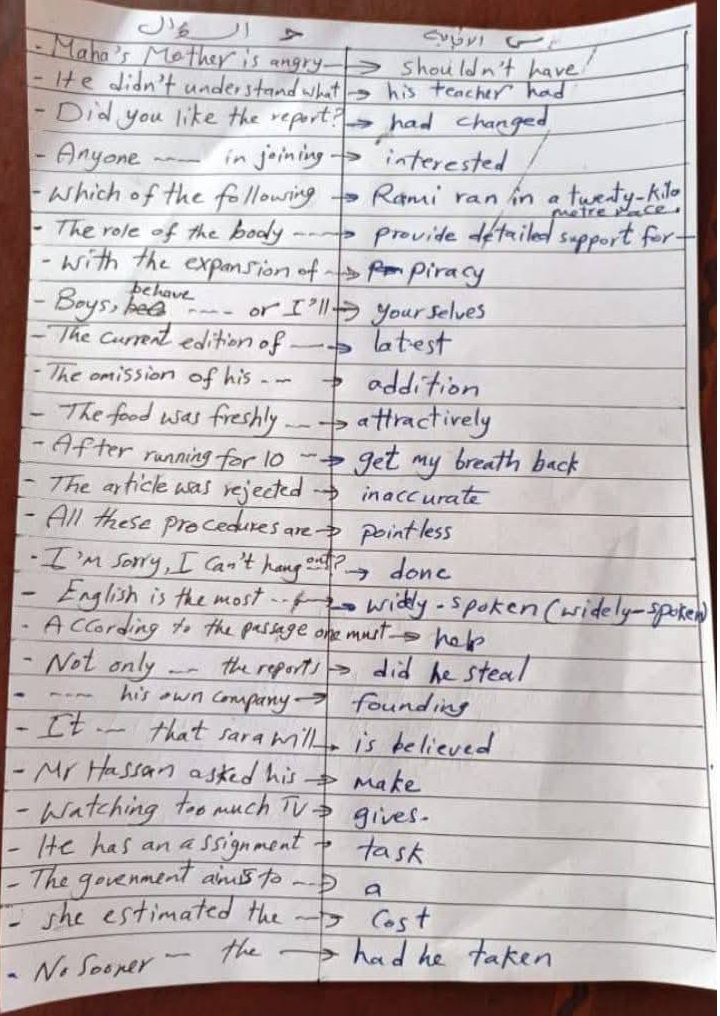 السؤال
- Maha's Mother is angry → shouldn't have
- He didn't understand what → his teacher had
- Did you like the report? → had changed
- Anyone ---- in joining → interested
- Which of the following → Rami ran in a twenty-kilo
metre race.
- The role of the body ----→ provide detailed support for
- With the expansion of --→ piracy
behave
- Boys, ---- or I'll → yourselves
- The current edition of → latest
- The omission of his -- → addition
- The food was freshly --→ attractively
- After running for 10 --→ get my breath back
- The article was rejected → inaccurate
- All these procedures are → pointless
- I'm sorry, I can't hang out? → done
- English is the most --→ widly-spoken (widely-spoken)
- According to the passage one must → help
- Not only -- the reports → did he steal
- ---- his own company → founding
- It -- that sara will → is believed
- Mr Hassan asked his → make
- Watching too much TV → gives.
- He has an assignment → task
- The govenment aims to --→ a
- she estimated the --→ cost
- No Sooner -- the → had he taken